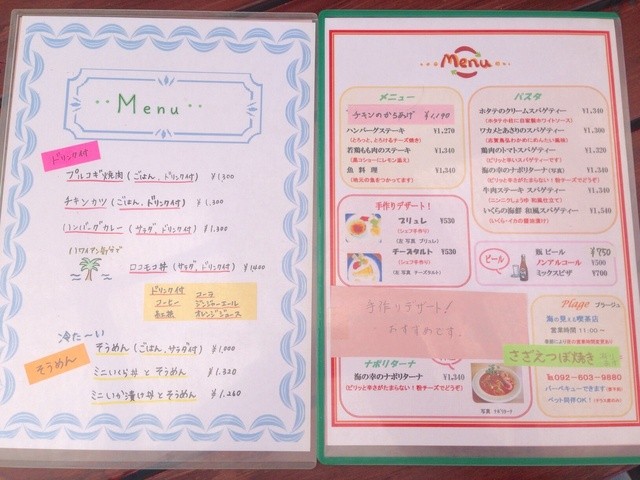 Menu
ドリンク付
プルコギ焼肉(ごはん、ドリンク付) ¥1,300
チキンカツ(ごはん、ドリンク付) ¥1,300
ハンバーグカレー(サラダ、ドリンク付) ¥1,300
ロコモコ丼(サラダ、ドリンク付) ¥1,400
ドリンク付
コーヒー
コーラ
ジンジャーエール
オレンジジュース
冷た〜い
そうめん
そうめん(ごはん、サラダ付) ¥1,000
ミニいくら丼とそうめん ¥1,320
ミニいか漬け丼とそうめん ¥1,260
Menu
メニュー
チキンのからあげ ¥1,190
ハンバーグステーキ ¥1,270
(とろっと、とろけるチーズ焼き)
若鶏もも肉のステーキ ¥1,340
(黒コショーにレモン添え)
魚料理 ¥1,340
(地元の魚をつかってます)
パスタ
ホタテのクリームスパゲティー ¥1,340
(ホタテ小柱に自家製ホワイトソース)
ワカメとあさりのスパゲティー ¥1,300
鶏肉のトマトスパゲティー ¥1,320
(ピリッと辛いスパゲティーです)
海の幸のナポリターナ(写真) ¥1,340
(ピリッと辛さがたまらない!粉チーズでどうぞ)
牛肉ステーキ スパゲティー ¥1,340
(ニンニクしょうゆ 和風仕立て)
いくらの海鮮 和風スパゲティー ¥1,540
(いくら・イカの醤油漬け)
手作りデザート!
ブリュレ ¥530
(シェフ手作り)
(左 写真 ブリュレ)
チーズタルト ¥530
(シェフ手作り)
(左 写真 チーズタルト)
ビール
瓶 ビール ¥750
ノンアルコール ¥500
ミックスピザ ¥700
手作りデザート!
おすすめです。
ナポリターナ
海の幸のナポリターナ ¥1,340
(ピリッと辛さがたまらない!粉チーズでどうぞ)
写真 ナポリターナ
Plage プラージュ
海の見える喫茶店
営業時間 11:00〜
さざえつぼ焼き
☎092-603-9880
バーベキューできます
ペット同伴OK!(テラス席のみ)